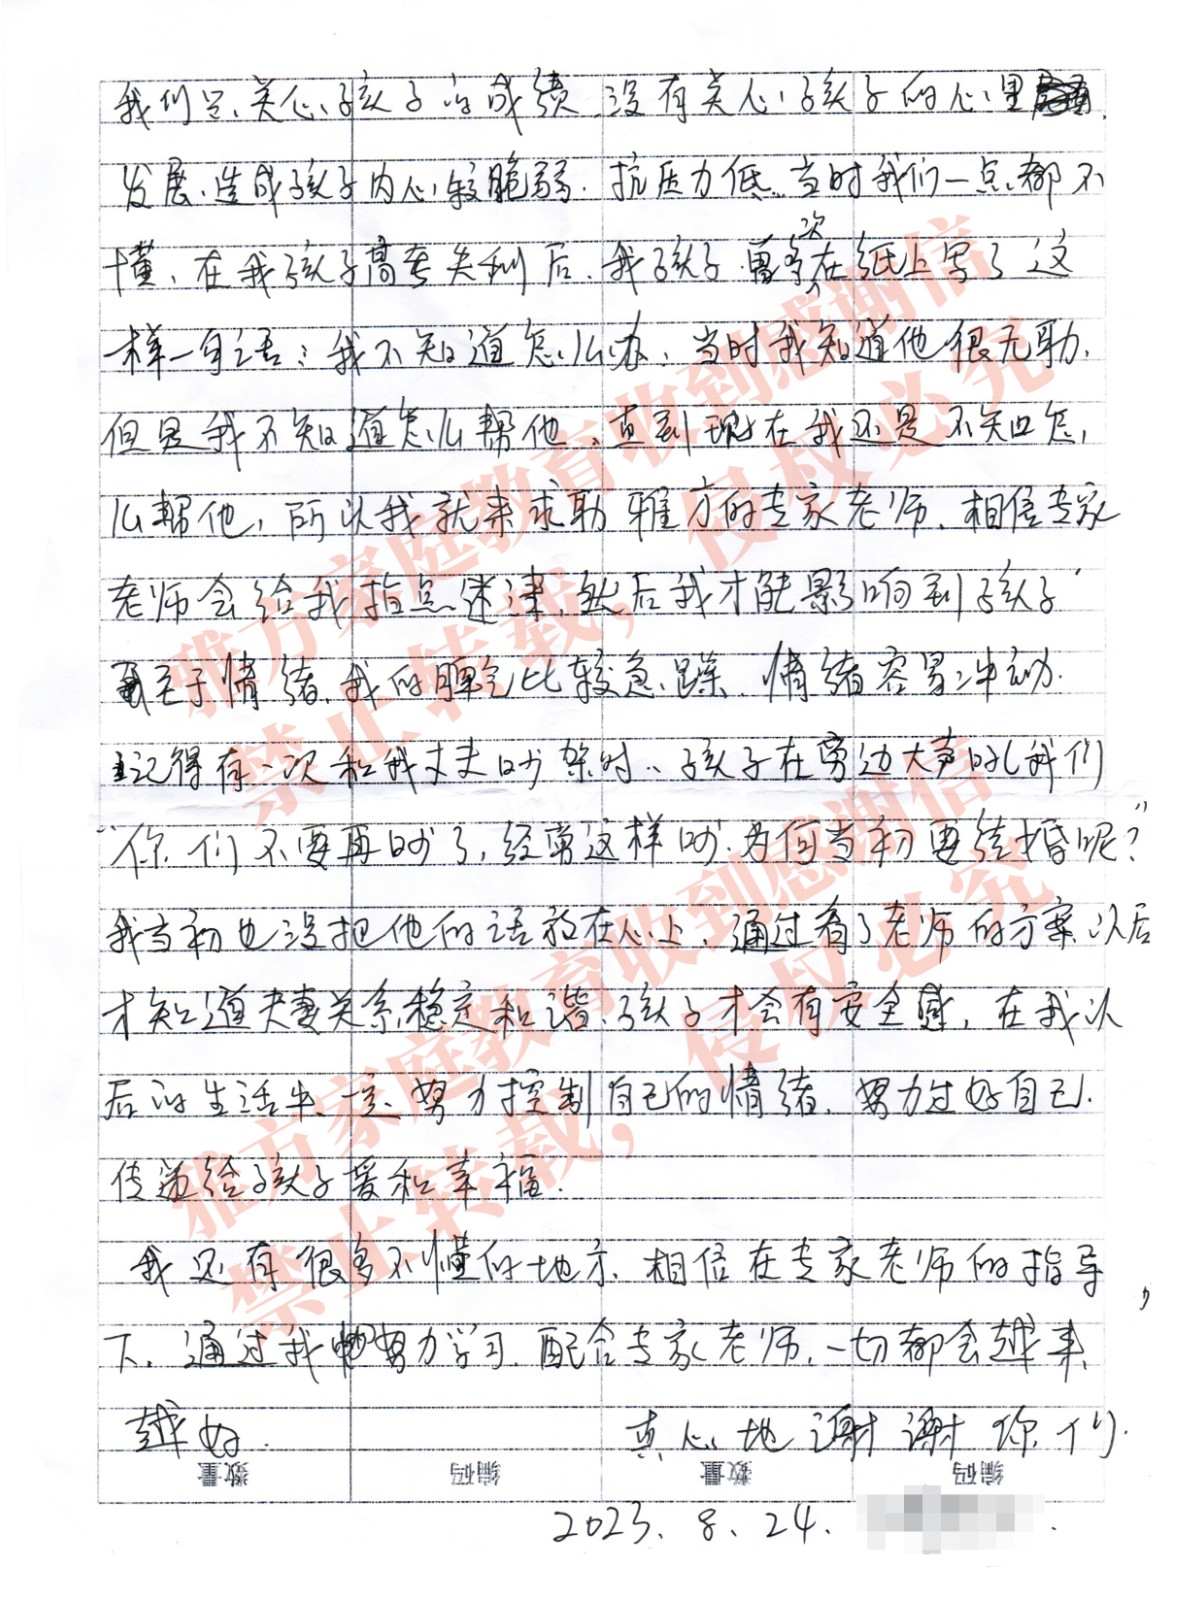 我们只关心孩子的成绩、没有关心孩子的心里
发展、造成孩子内心较脆弱、抗压力低、当时我们一点都不
懂、在我孩子高考失利后、我孩子曾多次在纸上写了这
样一句话：我不知道怎么办、当时我知道他很无助、
但是我不知道怎么帮他、直到现在我还是不知怎
么帮他，所以我就来求助雅方的专家老师、相信专家
老师会给我指点迷津、然后我才能影响到孩子
至于情绪、我的脾气比较急躁、情绪容易冲动.
记得有一次和我丈夫吵架时、孩子在旁边大声吼我们
“你们不要再吵了，经常这样吵、为何当初要结婚呢？”
我当初也没把他的话放在心上、通过看了老师的方案以后
才知道夫妻关系稳定和谐、孩子才会有安全感，在我以
后的生活中、一定努力控制自己的情绪、努力过好自己.
传递给孩子爱和幸福.
我还有很多不懂的地方、相信在专家老师的指导，
下、通过我努力学习、配合专家老师、一切都会越来
越好. 真心地谢谢你们.
数量 编码 数量 编码
2023.8.24.
雅方家庭教育收到感谢信
禁止转载，侵权必究
雅方家庭教育收到感谢信
禁止转载，侵权必究